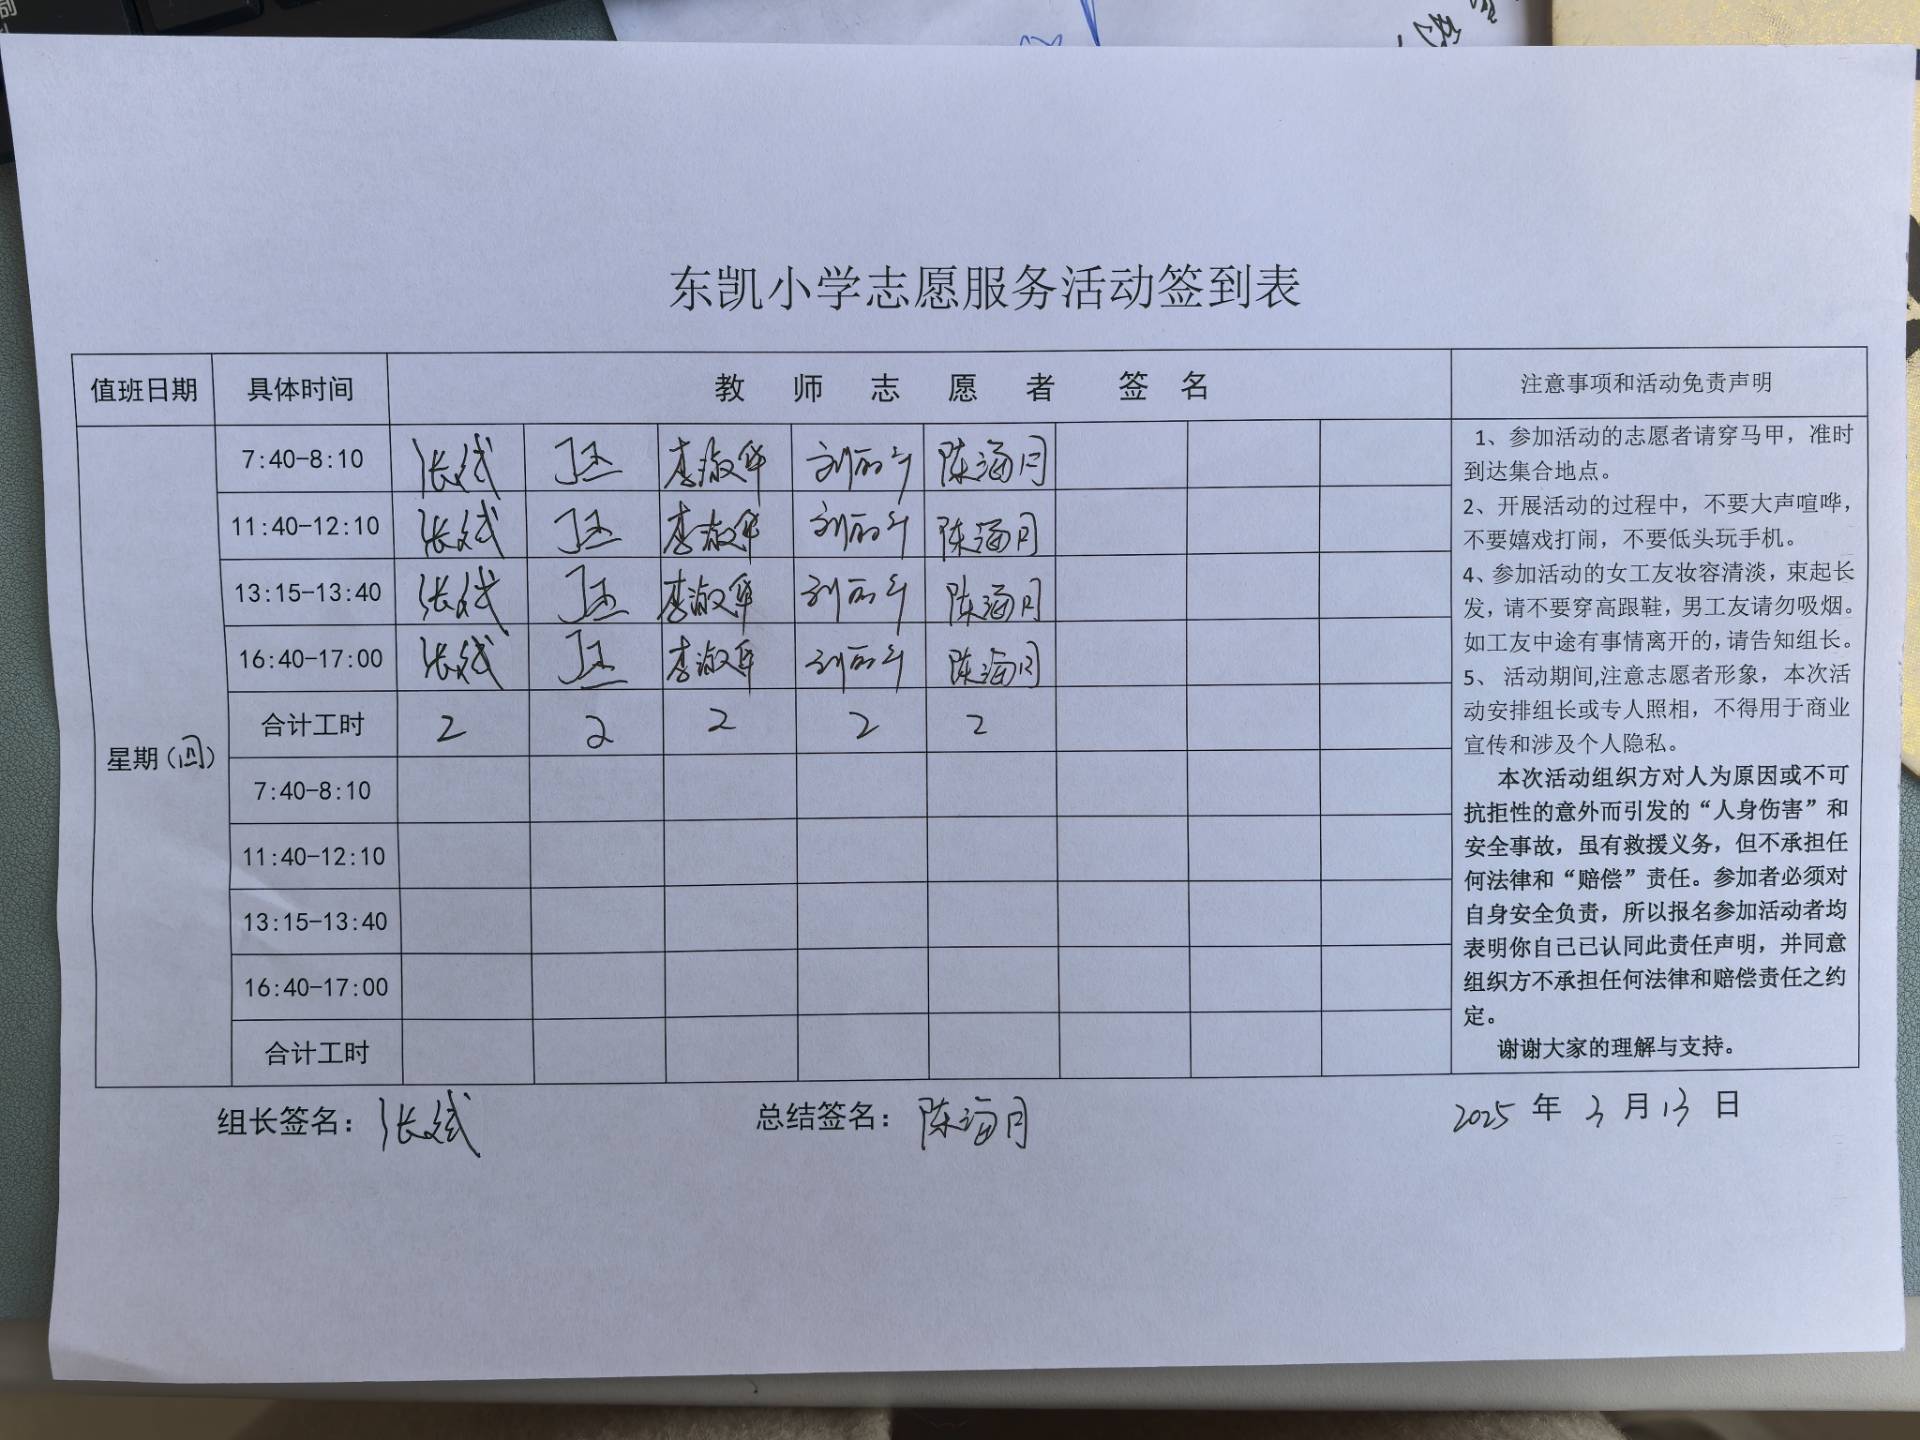 东凯小学志愿服务活动签到表
值班日期 具体时间 教师志愿者 签名 注意事项和活动免责声明
星期(四)
7:40-8:10 张斌 李淑华 陈海月
11:40-12:10 张斌 李淑华 陈海月
13:15-13:40 张斌 李淑华 陈海月
16:40-17:00 张斌 李淑华 陈海月
合计工时 2 2 2 2 2
7:40-8:10
11:40-12:10
13:15-13:40
16:40-17:00
合计工时
1、参加活动的志愿者请穿马甲，准时
到达集合地点。
2、开展活动的过程中，不要大声喧哗，
不要嬉戏打闹，不要低头玩手机。
4、参加活动的女工友妆容清淡，束起长
发，请不要穿高跟鞋，男工友请勿吸烟。
如工友中途有事情离开的，请告知组长。
5、 活动期间,注意志愿者形象，本次活
动安排组长或专人照相，不得用于商业
宣传和涉及个人隐私。
本次活动组织方对人为原因或不可
抗拒性的意外而引发的“人身伤害”和
安全事故，虽有救援义务，但不承担任
何法律和“赔偿”责任。参加者必须对
自身安全负责，所以报名参加活动者均
表明你自己已认同此责任声明，并同意
组织方不承担任何法律和赔偿责任之约
定。
谢谢大家的理解与支持。
组长签名：张斌 总结签名：陈海月 2025 年 3 月 13 日